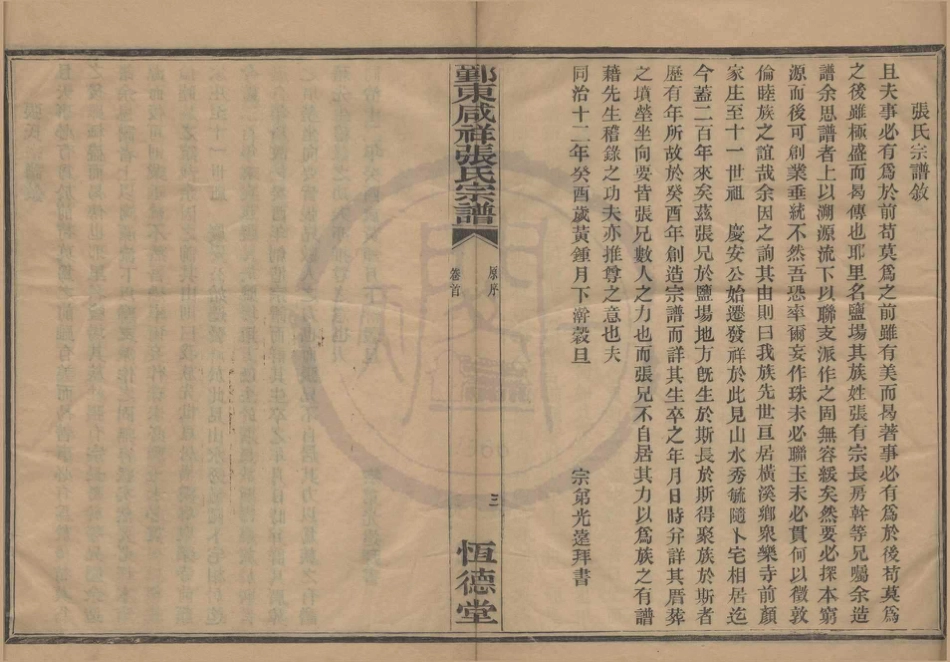 張氏宗譜敘
且夫事必有爲於前苟莫爲之前雖有美而曷著事必有爲於後苟莫爲
之後雖極盛而曷傳也耶里名鹽場其族姓張有宗長房幹等兄囑余造
譜余思譜者上以溯源流下以聯支派作之固無容緩矣然要必探本窮
源而後可創業垂統不然吾恐率爾妄作珠未必聯玉未必貫何以徵敦
倫睦族之誼哉余因之詢其由則曰我族先世亘居橫溪鄉衆樂寺前顏
家庄至十一世祖　慶安公始遷發祥於此見山水秀毓隨卜宅相居迄
今蓋二百年來矣茲張兄於鹽場地方旣生於斯長於斯得聚族於斯者
歷有年所故於癸酉年創造宗譜而詳其生卒之年月日時分詳其厝葬
之墳塋坐向要皆張兄數人之力也而張兄不自居其力以爲族之有譜
藉先生稽錄之功夫亦推尊之意也夫
同治十二年癸酉歲黃鍾月下澣穀旦　宗弟光遠拜書
鄞東咸祥張氏宗譜
原序
卷首
三
恆德堂